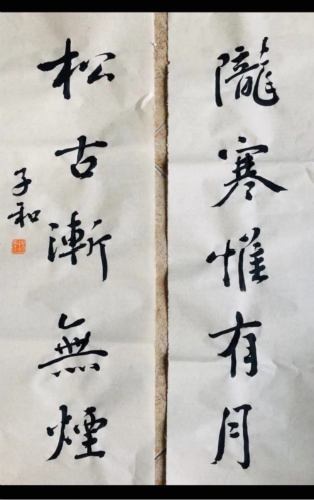 隴寒惟有月
松古漸無煙
子和